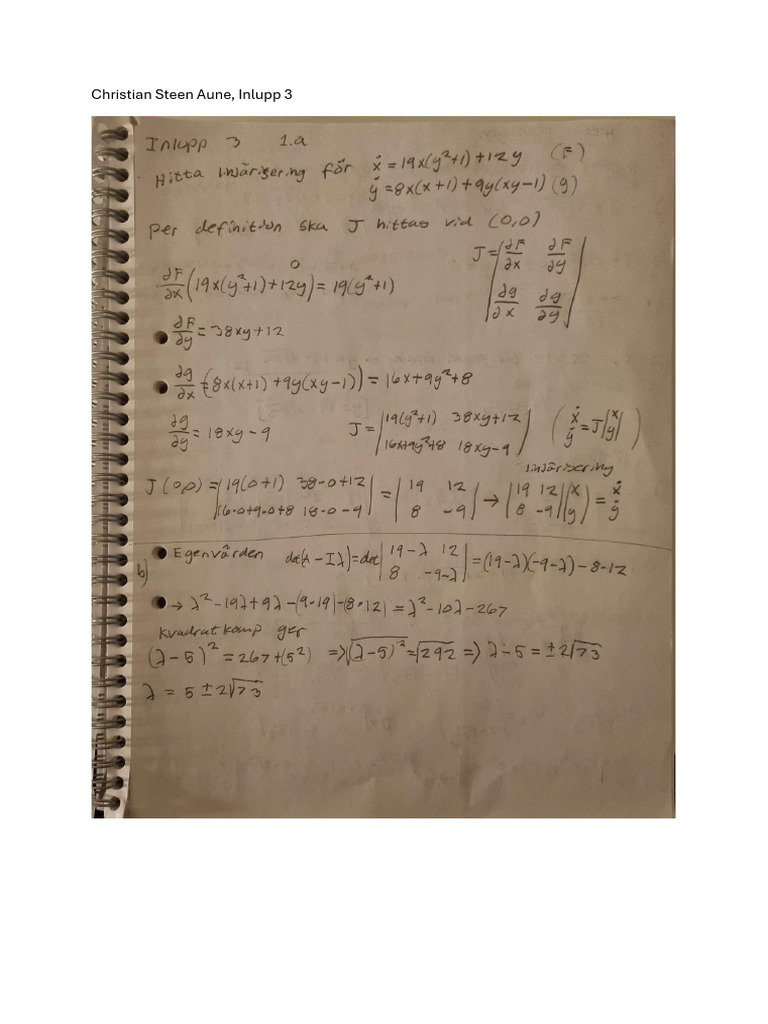 Christian Steen Aune, Inlupp 3
Inlupp 3 1.a
Hitta linjärisering för ẋ = 19x(y²+1)+12y (F)
ẏ = 8x(x+1)+9y(xy-1) (g)
Per definition ska J hittas vid (0,0)
J = |∂F/∂x ∂F/∂y|
|∂g/∂x ∂g/∂y|
∂F/∂x (19x(y²+1)+12y) = 19(y²+1)
0
∂F/∂y = 38xy+12
∂g/∂x = (8x(x+1)+9y(xy-1)) = 16x+9y²+8
∂g/∂y = 18xy-9
J = |19(y²+1) 38xy+12|
|16x+9y²+8 18xy-9|
(ẋ ẏ = J |x y|)
linjärisering
J(0,0) = |19(0+1) 38·0+12| = |19 12| → |19 12| |x| = ẋ
|16·0+9·0+8 18·0-9| |8 -9| |8 -9| |y| ẏ
b) Egenvärden det(A-Iλ) = det |19-λ 12| = (19-λ)(-9-λ)-8·12
|8 -9-λ|
→ λ²-19λ+9λ-(9·19)-(8·12) = λ²-10λ-267
Kvadratkomp ger
(λ-5)² = 267+(5²) => √(λ-5)² = √292 => λ-5 = ±2√73
λ = 5 ±2√73